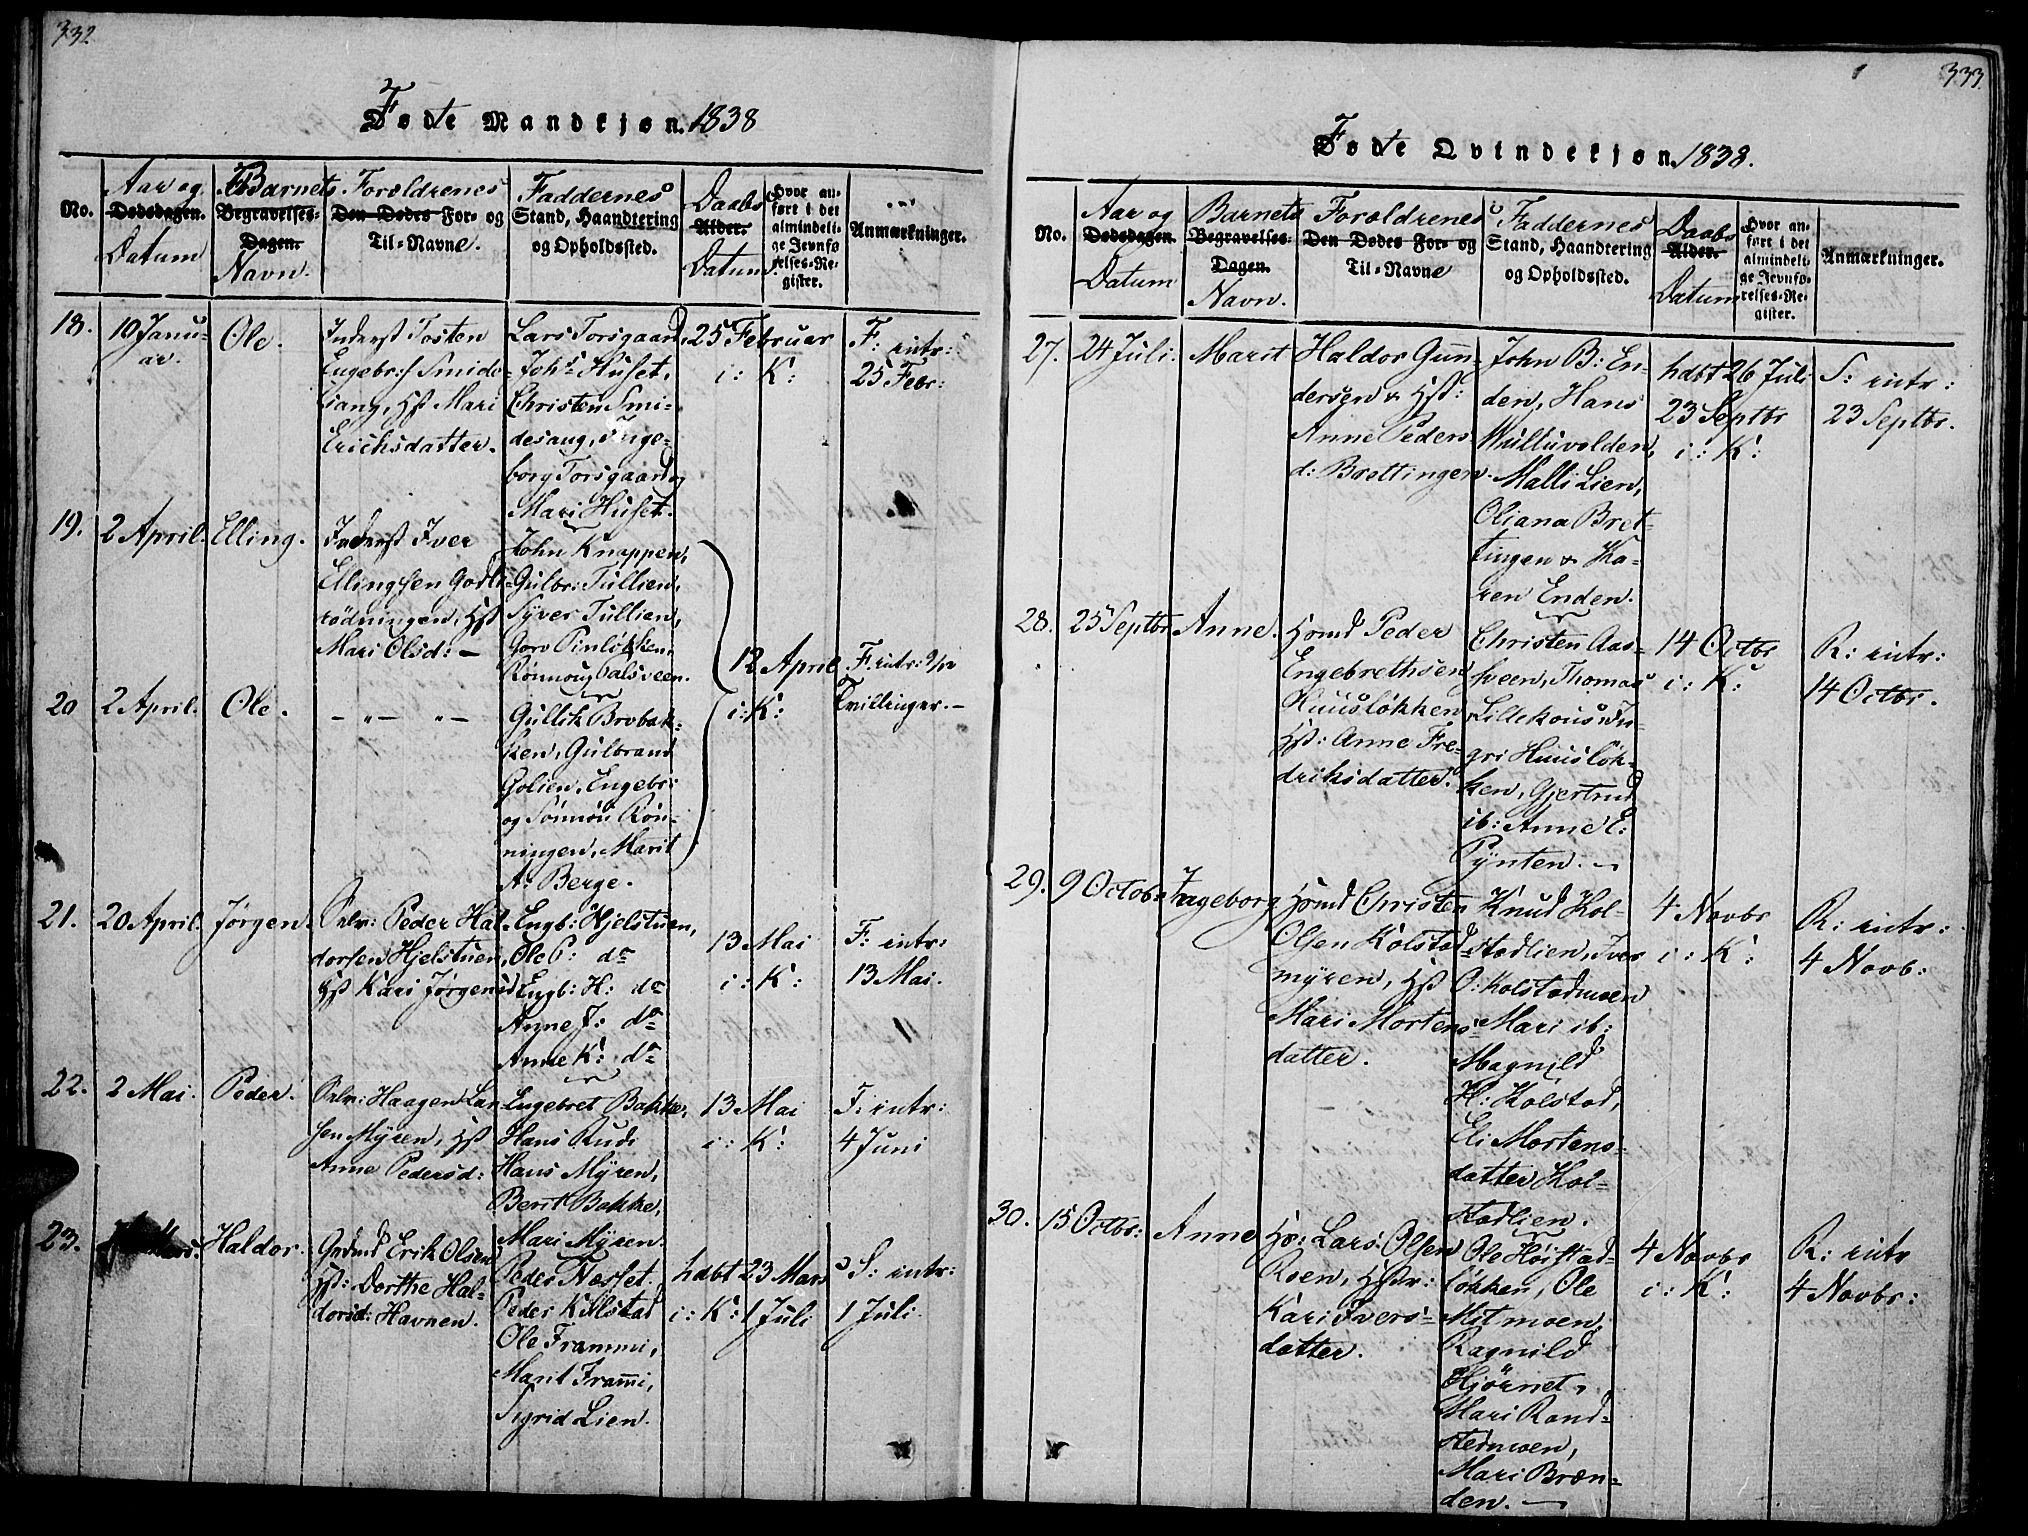 332
Fødte Mandkjøn. 1838
No.
Aar og
Dødsdagen.
Datum
Barnets
Begravelses-
Dagen.
Navn.
Forældrenes
Den Dødes For- og
Til-Navne.
Faddernes
Stand, Haandtering
og Opholdssted.
Daabs
Alder.
Datum
Hvor an-
ført i det
almindeli-
ge Jevnfø-
relses-Re-
gister.
Anmærkninger.
18.
10 Janu-
ar.
Ole.
Inderst Tosten
Engebr:s Smide-
sang, Hst Mari
Erichsdatter.
Lars Torsgaard,
Johs Huset,
Christen Smi-
desang, Inge-
borg Torsgaard og
Mari Huset.
25 Februar
i: K:
F: intr:
25 Febr:
19.
2 April.
Elling.
Inderst Iver
Ellingsen Godli-
rødningen, Hst
Mari Olsd: -
John Knappen,
Gulbr: Tullien,
Syver Tullien,
Goro Pinløkken,
Rønnoug Valsveen.
12 April
i: K:
F: intr: 9/12
Tvillinger. -
20
2 April.
Ole.
- " - " -
Gullik Brobak-
ken, Gulbrand
Golien, Engebr:
og Sønnøu Røn-
ningen, Marit
A: Berge.
21.
20 April.
Jørgen.
Peder Hal-
dorsen Hjelstuen,
Hst Kari Jørgensd
Engb: Hjelstuen,
Ole P: do
Engb: H: do
Anne J: do
Anne K: do
13 Mai
i: K:
F: intr:
13 Mai.
22.
2 Mai.
Peder.
Haagen Lar-
sen Myren, Hst
Anne Pedersd:
Engebret Bakke,
Hans Rudi
Hans Myren,
Berit Bakke,
Mari Myren.
13 Mai
i: K:
F: intr:
4 Juni
23.
Haldor.
Gmd Erik Olsen
Hst: Dorthe Hal-
dorsd: Havnen.
Peder Næsset.
Peder Killstad
Ole Frammi,
Marit Frami,
Sigrid Lien.
hdbt 23 Mars
i: K: 1 Juli
S: intr:
1 Juli.
333.
Fødte Qvindekjøn 1838.
No.
Aar og
Dødsdagen.
Datum
Barnets
Begravelses-
Dagen.
Navn.
Forældrenes
Den Dødes For- og
Til-Navne
Faddernes
Stand, Haandtering
og Opholdssted.
Daabs
Alder.
Datum
Hvor an-
ført i det
almindeli-
ge Jevnfø-
relses-Re-
gister.
Anmærkninger.
27.
24 Juli.
Marit
Haldor Gun-
dersen & Hst:
Anne Peders-
d: Brettingen.
John B: En-
den, Hans
Mulluvolden,
Malli Lien,
Oliana Bret-
tingen & Ka-
ren Enden.
hdbt 26 Juli
23 Septbr
i: K:
S: intr:
23 Septbr.
28.
25 Septbr
Anne.
Hmd Peder
Engebrethsen
Huusløkken
Hst: Anne Fre-
driksdatter.
Christen Aas-
sveen, Thomas
Lillekous, In-
gri Huusløk-
ken, Gjertrud
ib: Anne E:
Pynten. -
14 Octbr
i: K:
R: intr:
14 Octbr.
29.
9 Octobr
Ingeborg
Hmd Christen
Olsen Kolstad-
myren, Hst
Mari Mortens-
datter.
Knud Kol-
stadlien, Iver
O: Kolstadmoen
Mari ib:
Magnild
H: Kolstad,
Eli Mortens-
datter Kol-
stadlien.
4 Novbr
i: K:
R: intr:
4 Novb:
30.
15 Octbr:
Anne
Hr: Lars Olsen
Roen, Hstr:
Kari Ivers-
datter.
Ole Høistad-
løkken, Ole
Mitmoen,
Ragnild
Hjørnet,
Mari Rand-
stedmoen,
Mari Bræn-
den. -
4 Novbr
i: K:
R: intr
4 Novbr: